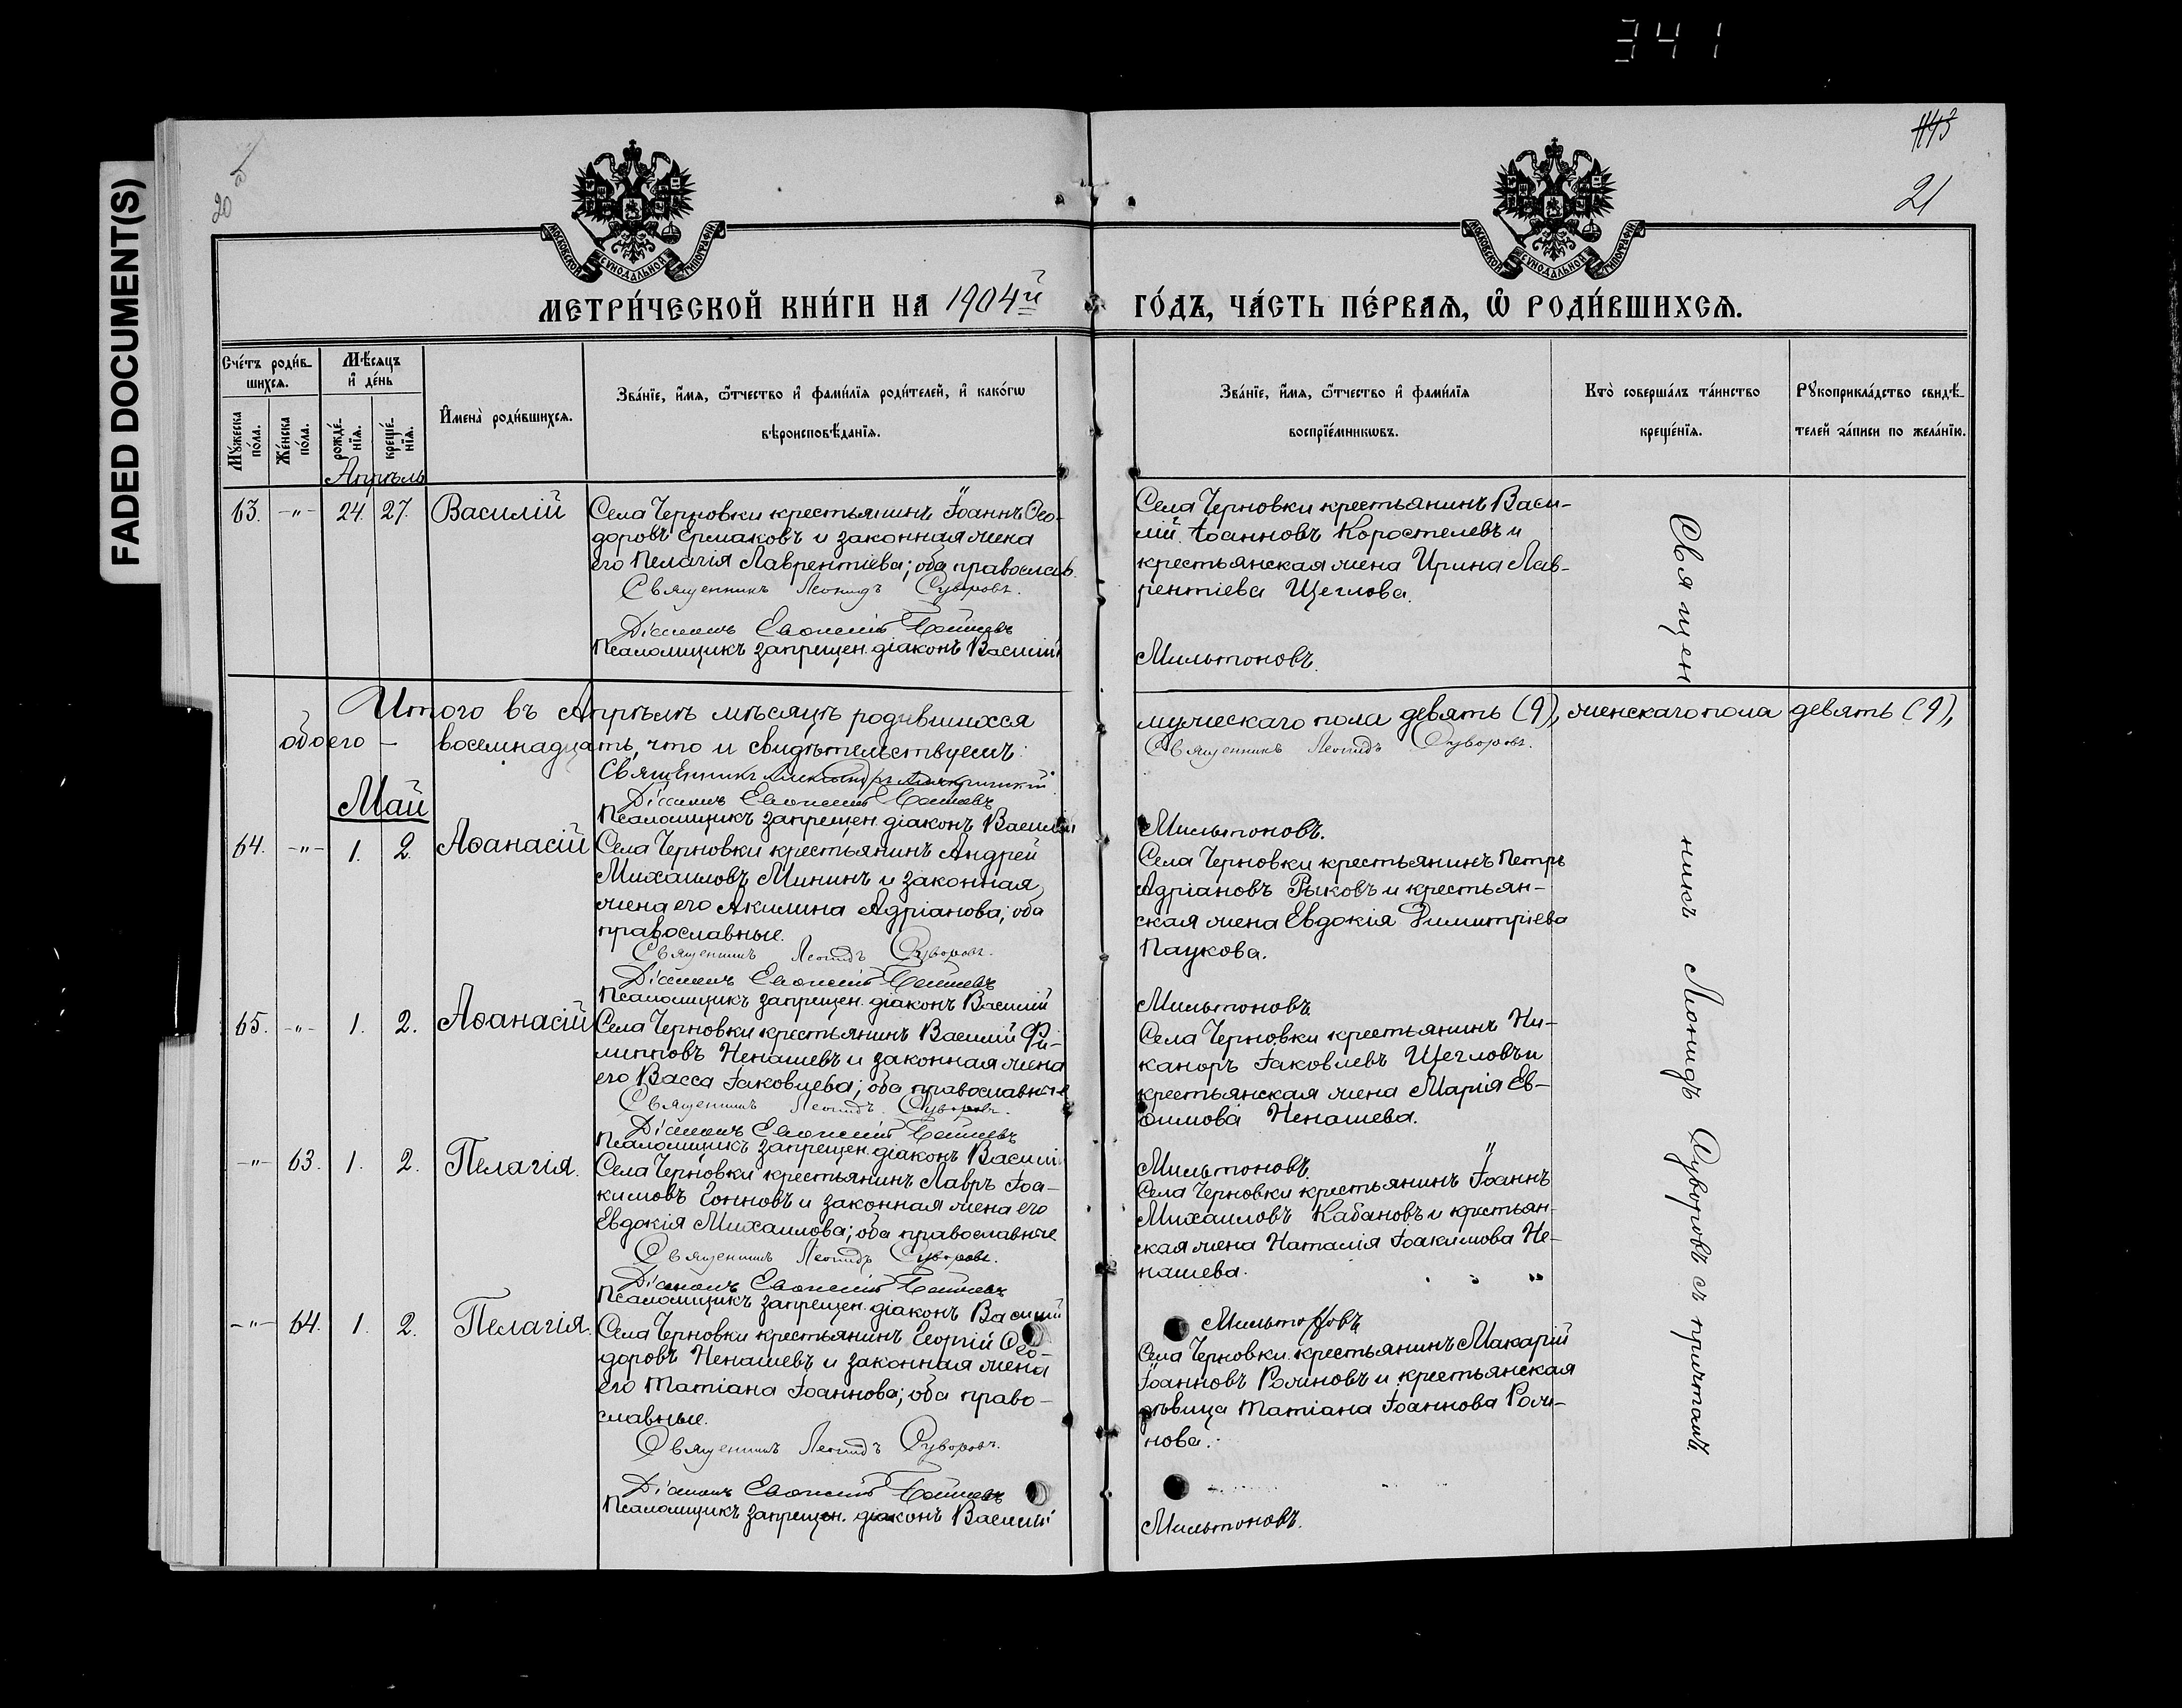 341
FADED DOCUMENT(S)
20
21
МОСКОВСКОЙ СѴНОДАЛЬНОЙ ТИПОГРАФІИ
МОСКОВСКОЙ СѴНОДАЛЬНОЙ ТИПОГРАФІИ
МЕТРИ́ЧЕСКОЙ КНИ́ГИ НА 1904й ГО́ДЪ, ЧА́СТЬ ПЕ́РВАѦ, Ѽ РОДИ́ВШИХСѦ.
Сче́тъ роди́вшихсѧ.
Мꙋ́жеска по́ла.
Же́нска по́ла.
Мѣ́сѧцъ и҆ де́нь
рожде́нїѧ.
креще́нїѧ.
И҆мена̀ роди́вшихсѧ.
Зва́нїе, и҆́мѧ, ѻ҆́тчество и҆ фами́лїѧ роди́телей, и҆ како́гѡ
вѣроисповѣ́данїѧ.
Зва́нїе, и҆́мѧ, ѻ҆́тчество и҆ фами́лїѧ
воспрїе́мникѡвъ.
Кто̀ соверша́лъ та́инство
креще́нїѧ.
Рꙋкоприкла́дство свидѣ́-
телей за́писи по жела́нїю.
Апрѣль
63. -"- 24. 27. Василій
Села Черновки крестьянинъ Іоаннъ Ѳео-
доровъ Ермаковъ и законная жена
его Пелагія Лаврентіева; оба православ.
Священникъ Леонидъ Суворовъ.
Діаконъ Евѳимій
Псаломщикъ запрещен. діаконъ Василій
Села Черновки крестьянинъ Васи-
лій Іоанновъ Коростелевъ и
крестьянская жена Ирина Лав-
рентіева Щеглова.
Мильтоновъ.
Итого въ Апрѣлѣ мѣсяцѣ родившихся мужескаго пола девять (9), женскаго пола девять (9),
обоего - восемнадцать, что и свидѣтельствуемъ:
Священникъ Леонидъ Суворовъ.
Священникъ Александръ
Діаконъ Евѳимій
Псаломщикъ запрещен. діаконъ Василій
Мильтоновъ.
Май
64. -"- 1. 2. Аѳанасій
Села Черновки крестьянинъ Андрей
Михаиловъ Мининъ и законная
жена его Акилина Адріанова; оба
православные.
Священникъ Леонидъ Суворовъ.
Діаконъ Евѳимій
Псаломщикъ запрещен. діаконъ Василій
Села Черновки крестьянинъ Петръ
Адріановъ Рыковъ и крестьян-
ская жена Евдокія Димитріева
Паукова.
Мильтоновъ
65. -"- 1. 2. Аѳанасій
Села Черновки крестьянинъ Василій Фи-
липповъ Ненашевъ и законная жена
его Васса Іаковлева; оба православные
Священникъ Леонидъ Суворовъ.
Діаконъ Евѳимій
Псаломщикъ запрещен. діаконъ Василій
Села Черновки крестьянинъ Ни-
каноръ Іаковлевъ Щегловъ и
крестьянская жена Марія Ев-
ѳимова Ненашева.
Мильтоновъ.
-"- 63. 1. 2. Пелагія.
Села Черновки крестьянинъ Лавръ Іоа-
кимовъ Гонновъ и законная жена его
Евдокія Михаилова; оба православные
Священникъ Леонидъ Суворовъ.
Діаконъ Евѳимій
Псаломщикъ запрещен. діаконъ Василій
Села Черновки крестьянинъ Іоаннъ
Михаиловъ Кабановъ и крестьян-
ская жена Наталія Іоакимова Не-
нашева.
Мильтоновъ
-"- 64. 1. 2. Пелагія.
Села Черновки крестьянинъ Георгій Ѳео-
доровъ Ненашевъ и законная жена
его Татіана Іоаннова; оба право-
славные.
Священникъ Леонидъ Суворовъ.
Діаконъ Евѳимій
Псаломщикъ запрещен. діаконъ Василій
Села Черновки крестьянинъ Макарій
Іоанновъ Рожновъ и крестьянская
дѣвица Татіана Іоаннова Рож-
нова.
Мильтоновъ.
Священникъ Леонидъ Суворовъ съ причтомъ